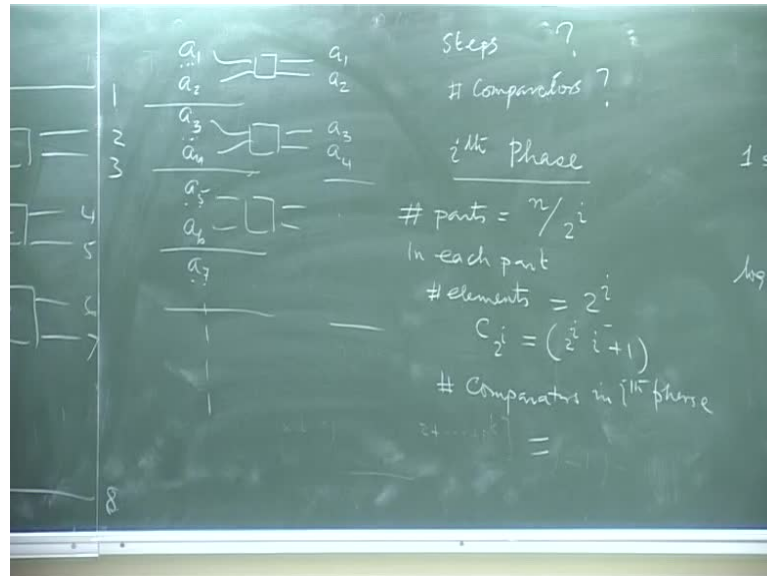 1
2
3
4
5
6
7
8
a1
a2
a3
a4
a5
a6
a7
a1
a2
a3
a4
Steps ?
# Comparators ?
ith Phase
# parts = n/2^i
In each part
# elements = 2^i
C_2^i = (2^i i + 1)
# Comparators in ith phase
=
1 s
log